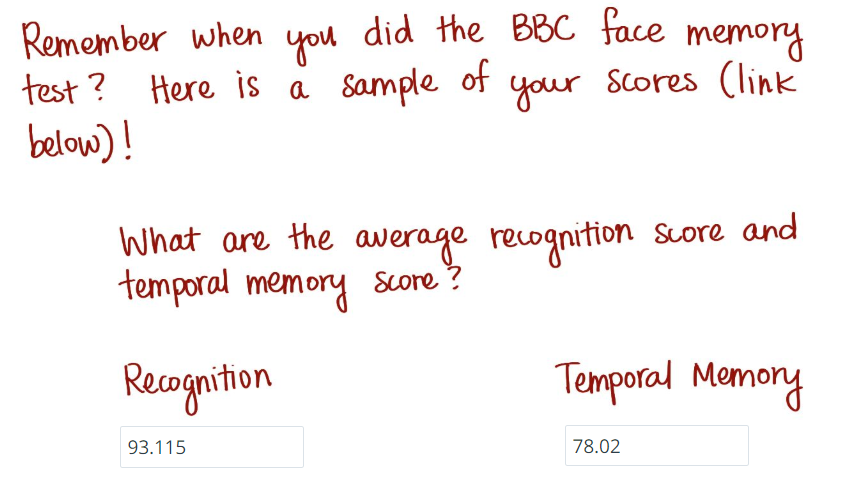 Remember when you did the BBC face memory
test? Here is a sample of your scores (link
below)!
What are the average recognition score and
temporal memory score?
Recognition
Temporal Memory
93.115
78.02